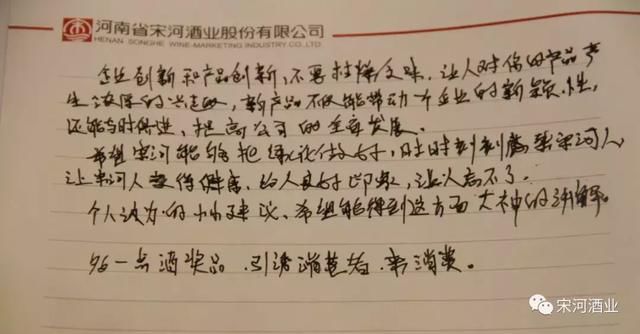 河南省宋河酒业股份有限公司
HENAN SONGHE WINE-MARKETING INDUSTRY CO.,LTD
企业创新和产品创新,不要枯燥文味,让人对你的产品产
生浓厚的兴趣,新产品不仅能带动个企业的新颖性,
还能与时俱进,提高公司的全章发展。
希望宋河能够把绿化做好,时时刻刻宋河人
让宋河人变得健康,给人良好印象,让人忘不了。
个人认为的小小建议,希望能得到这方面大神的讲解。
多一点酒奖品 引诱消费者 来消费。
宋河酒业